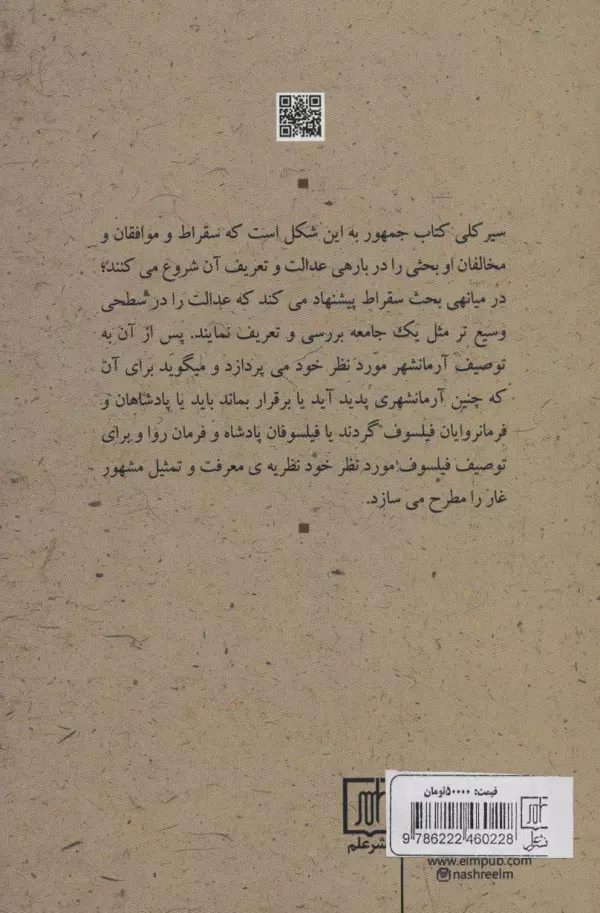 سیر کلی کتاب جمهور به این شکل است که سقراط و موافقان و
مخالفان او بحثی را در بارهی عدالت و تعریف آن شروع می کنند؛
در میانهی بحث سقراط پیشنهاد می کند که عدالت را در سطحی
وسیع تر مثل یک جامعه بررسی و تعریف نمایند. پس از آن به
توصیف آرمانشهر مورد نظر خود می پردازد و میگوید برای آن
که چنین آرمانشهری پدید آید یا برقرار بماند باید یا پادشاهان و
فرمانروایان فیلسوف گردند یا فیلسوفان پادشاه و فرمان روا و برای
توصیف فیلسوف مورد نظر خود نظریه ی معرفت و تمثیل مشهور
غار را مطرح می سازد.
قیمت: ۵۰۰۰۰تومان
علم
نشر علم
9 786222 460228
نشر علم
www.elmpub.com
nashreelm